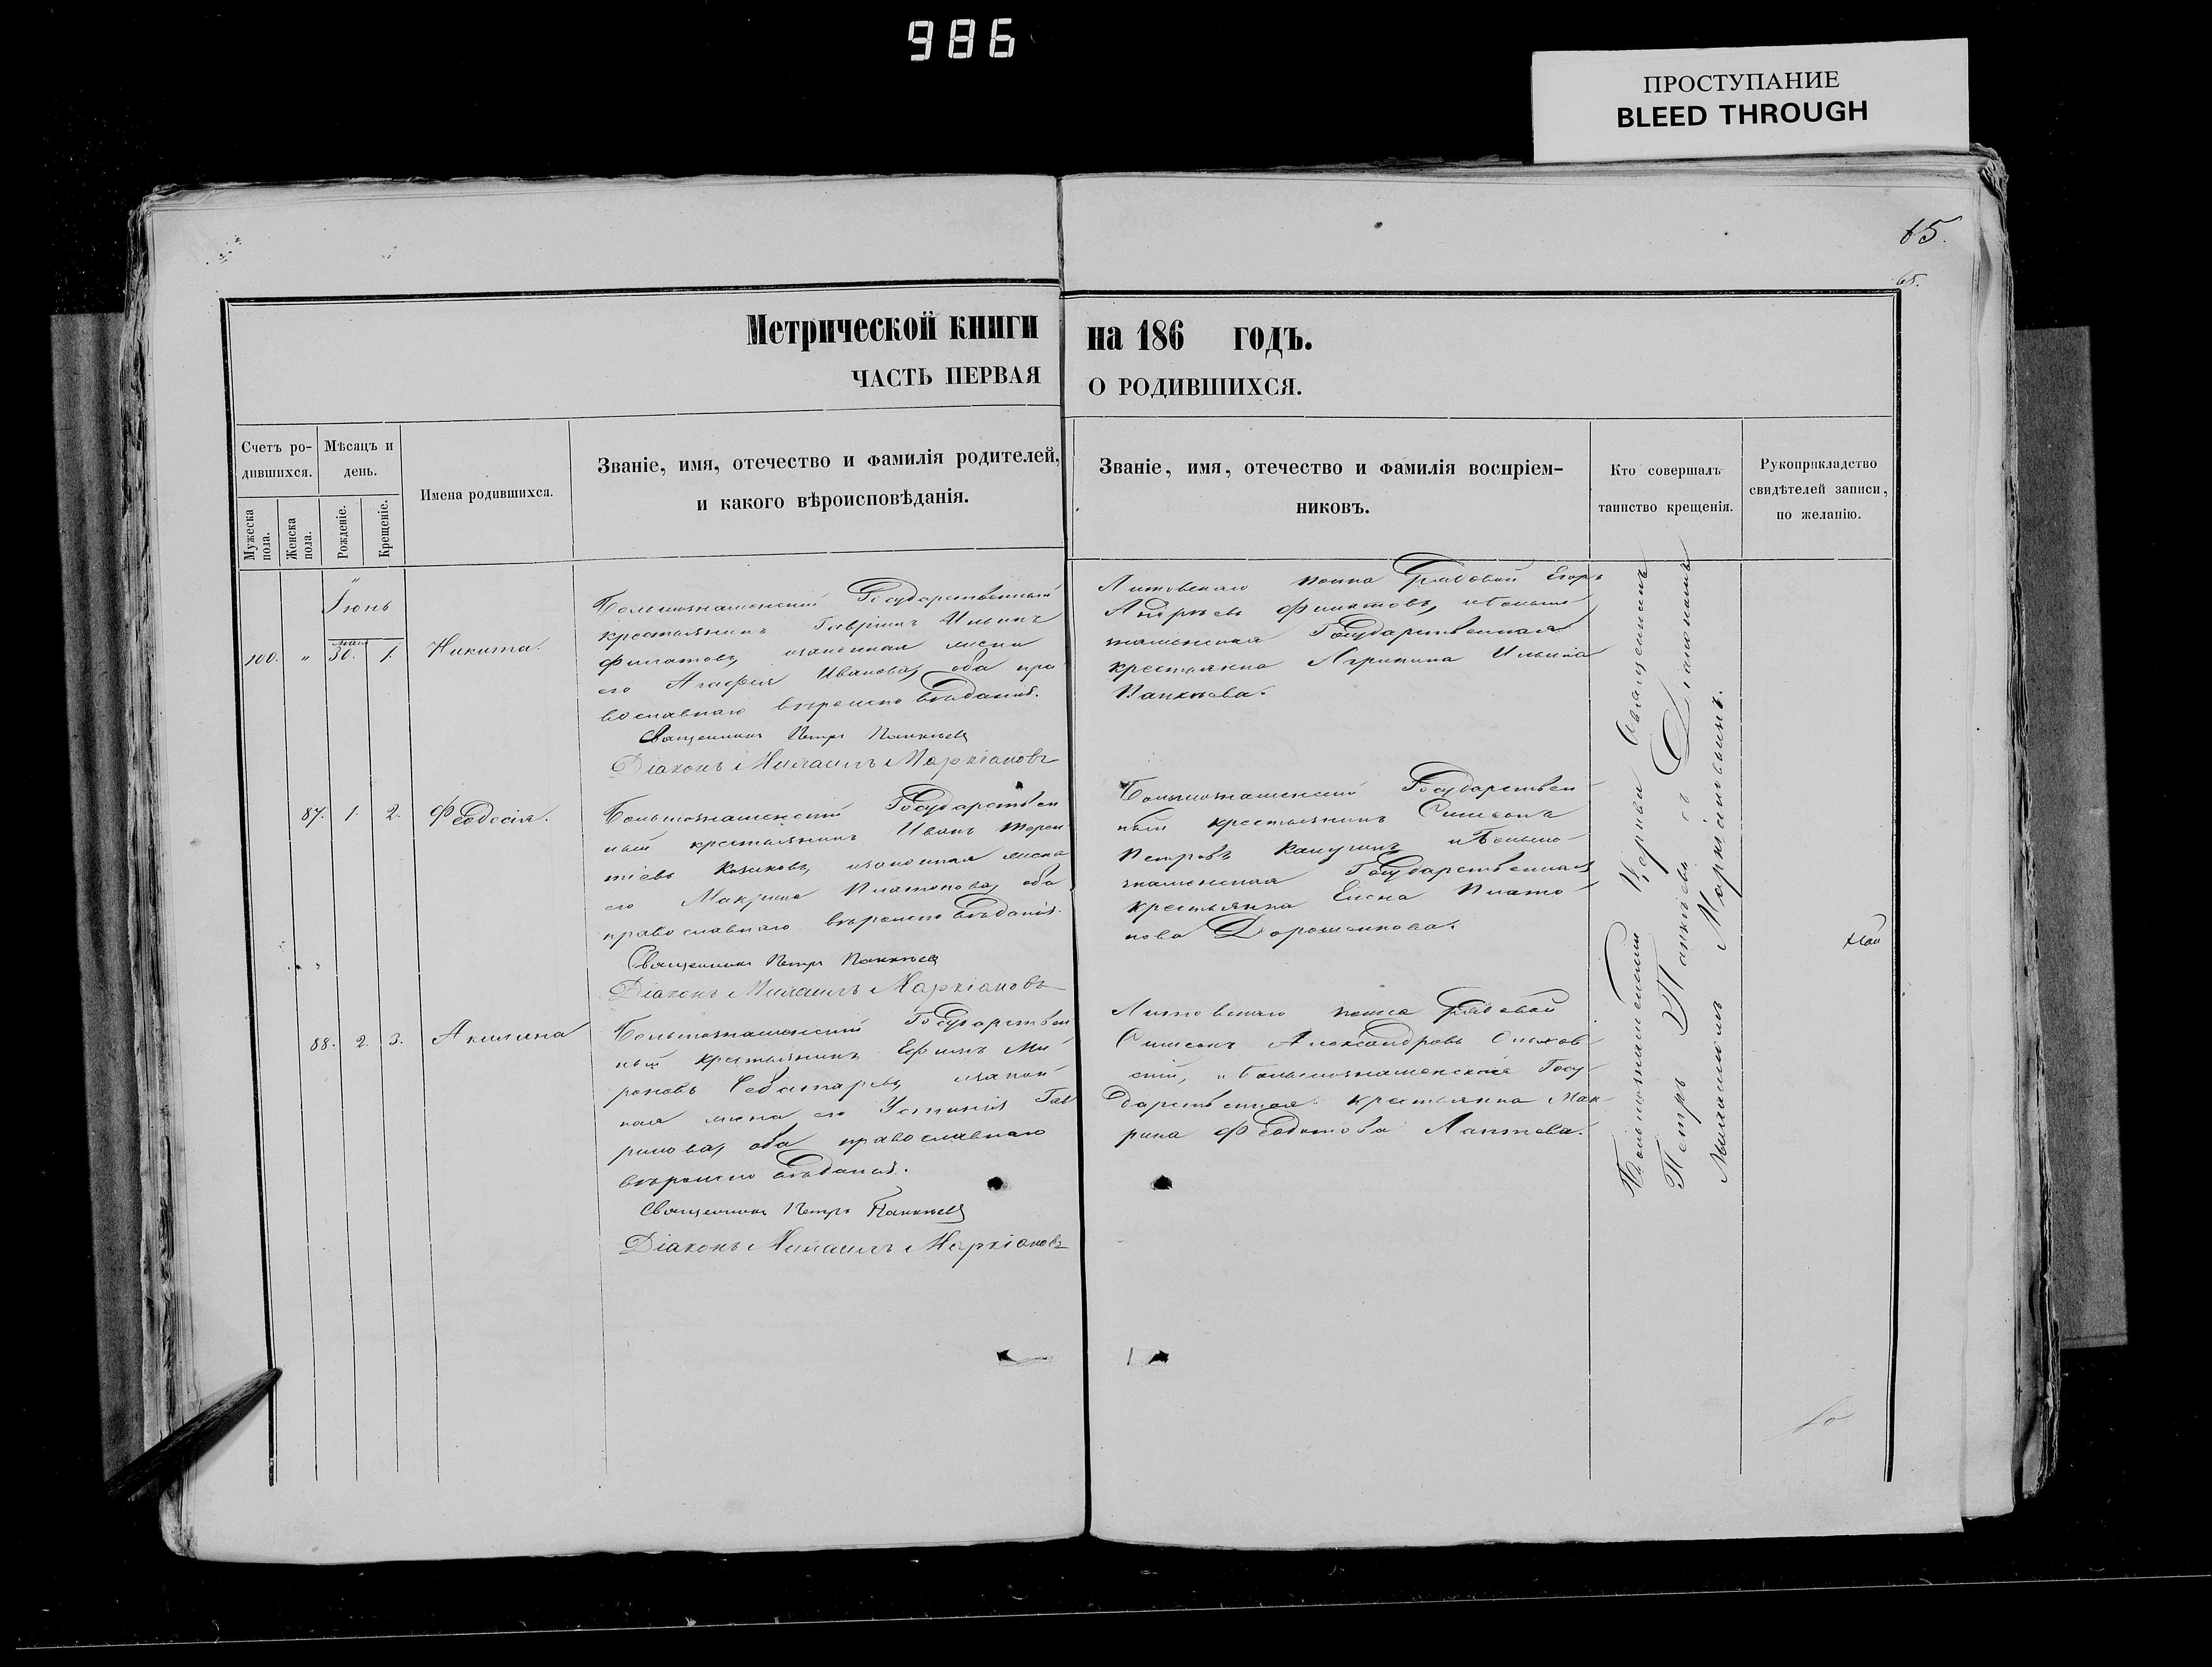 986
ПРОСТУПАНИЕ
BLEED THROUGH
65.
65.
Метрической книги на 186 годъ.
ЧАСТЬ ПЕРВАЯ О РОДИВШИХСЯ.
Счетъ ро-
дившихся.
Мужеска
пола.
Женска
пола.
Мѣсяцъ и
день.
Рожденіе.
Крещеніе.
Имена родившихся.
Званіе, имя, отечество и фамилія родителей,
и какого вѣроисповѣданія.
Званіе, имя, отечество и фамилія воспріем-
никовъ.
Кто совершалъ
таинство крещенія.
Рукоприкладство
свидѣтелей записи,
по желанію.
Іюнь
мая
100. " 30. 1. Никита.
Большознаменскій Государственный
крестьянинъ Гавріилъ Ильинъ
Филатовъ, изаконная жена
его Агафія Иванова, оба пра-
вославнаго вѣроисповѣданія.
Священникъ Петръ Панкѣевъ
Діаконъ Михаилъ Маркіановъ
Литовскаго полка Рядовой Егоръ
Андрѣевъ Филатовъ, иБольше
знаменская Государственная
крестьянка Агрипина Ильина
Панкѣева.
87. 1. 2. Феодосія.
Большознаменскій Государствен
ный крестьянинъ Иванъ Терен
тіевъ Козаковъ, изаконная жена
его Макрина Платонова, оба
православнаго вѣроисповѣданія.
Священникъ Петръ Панкѣевъ
Діаконъ Михаилъ Маркіановъ
Большознаменскій Государствен
ный крестьянинъ Симеонъ
Петровъ иБольшо
знаменская Государственная
крестьянка Елена Плато-
нова Дорошенкова.
88. 2. 3. Акилина
Большознаменскій Государствен
ный крестьянинъ Ефимъ Ми-
роновъ изакон-
ная жена его Устинія Гав
рилова, оба православнаго
вѣроисповѣданія.
Священникъ Петръ Панкѣевъ
Діаконъ Михаилъ Маркіановъ
Литовскаго полка Рядовой
Симеонъ Александровъ
скій, и Большознаменская Госу-
дарственная крестьянка Мак-
рина Федотова Лаптева.
Большознаменской Церкви Священникъ
Петръ Панкѣевъ съ Діакономъ
Михаиломъ Маркіановымъ.